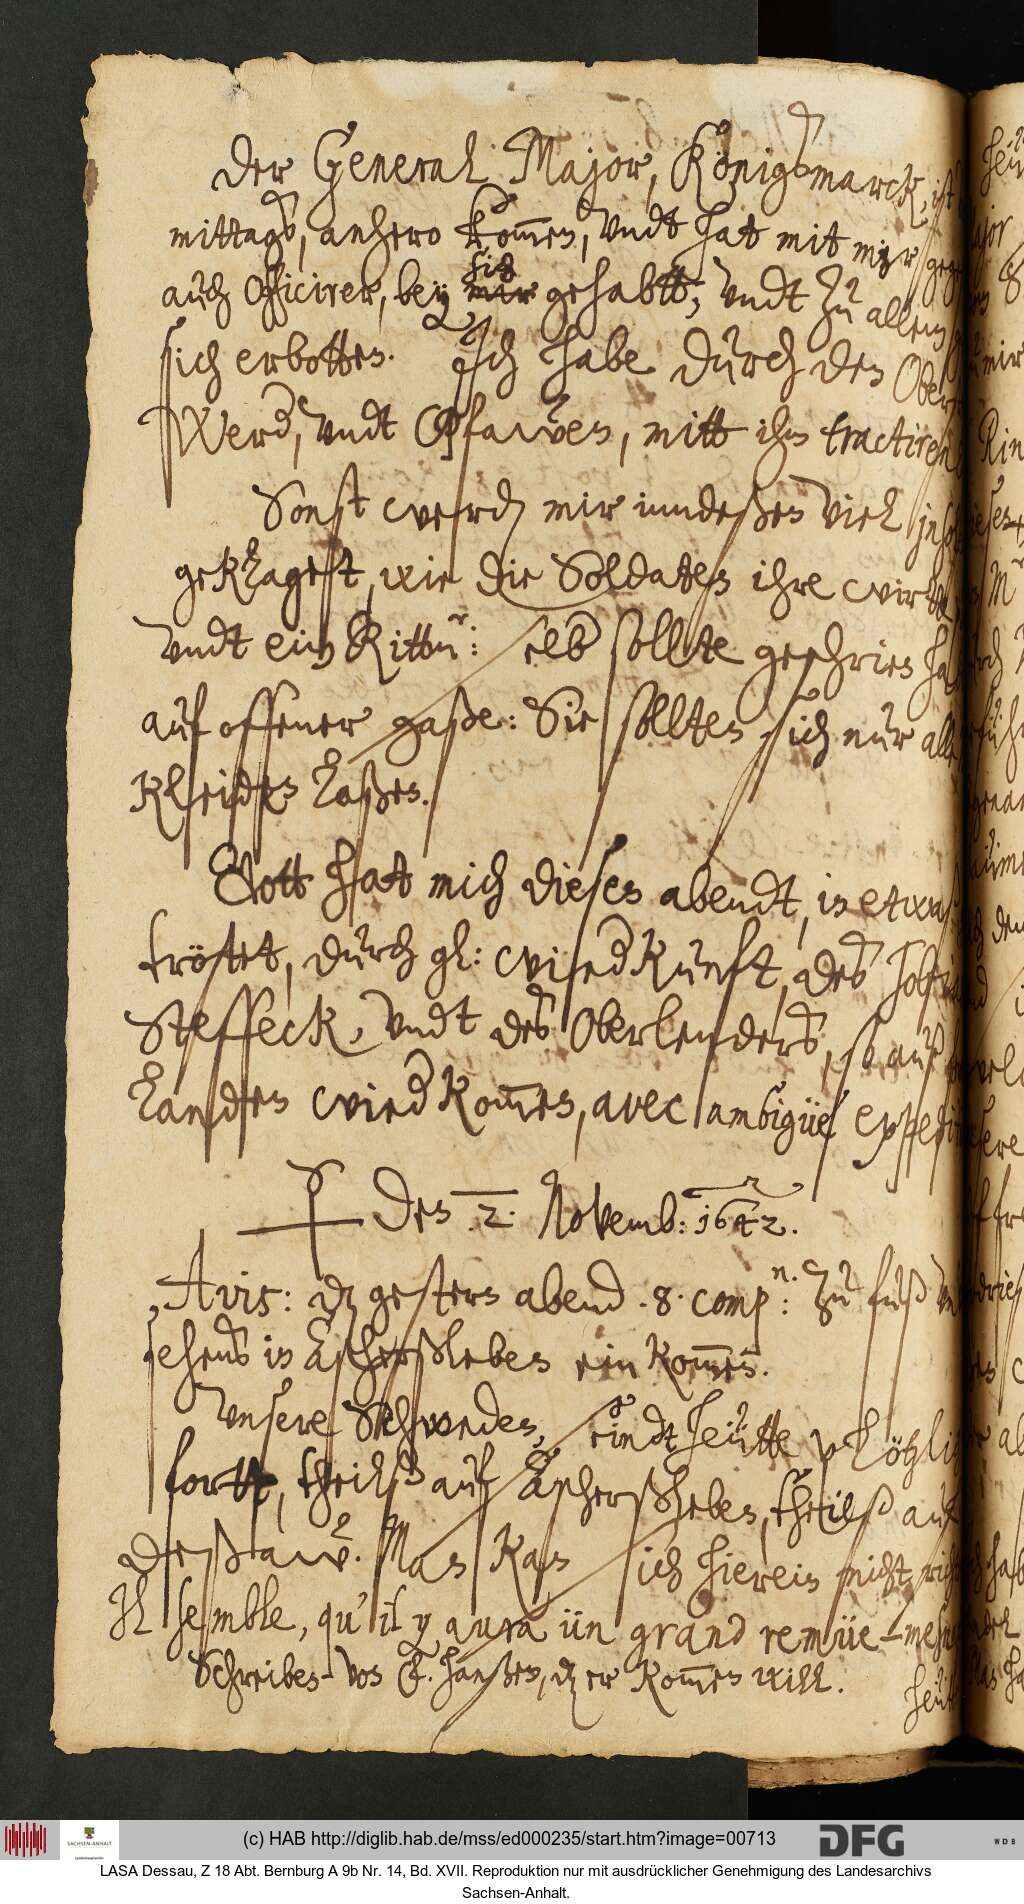 Der General Major, Königsmarck, ist
mittags, anhero kom̅en, vndt hat mit mir
auch Officirer, bey mir sich gehabtt, vndt zu allem
sich erbotten. Ich habe durch den Ober
Werder, vndt Pfawen, mitt ihm tractiren
Sonst werden mir inndeßen viel
geklaget, wie die Soldaten ihre wirtte
vndt ein Rittm.r: selb sollte geschrien
auf offener gaße: Sie sollten sich nur alle
kleiden laßen.
Gott hat mich dieses abendt, in etwaß
tröstet, durch gl: wiederkunft, des
Steffeck, vndt des Oberlenders, so auß
Landen wiederkom̅en, avec ambigües
Den .2. Novemb: 1642.
Avis: daß gestern abend .8. comp.n: zu fuß
sehends in Aschersleben ein kom̅en.
Vnsere Schweden, sindt heütte plötzlich
fortt, theilß auf Aschersleben, theilß auf
Deßaw. Man kan mich hierein nicht
Il semble, qu'il y aura ün grand remüe-mes
Schreiben von E. Hanßen, daß er kom̅en will.
heüt
(c) HAB http://diglib.hab.de/mss/ed000235/start.htm?image=00713
DFG
WDB
SACHSEN-ANHALT
LASA Dessau, Z 18 Abt. Bernburg A 9b Nr. 14, Bd. XVII. Reproduktion nur mit ausdrücklicher Genehmigung des Landesarchivs
Sachsen-Anhalt.